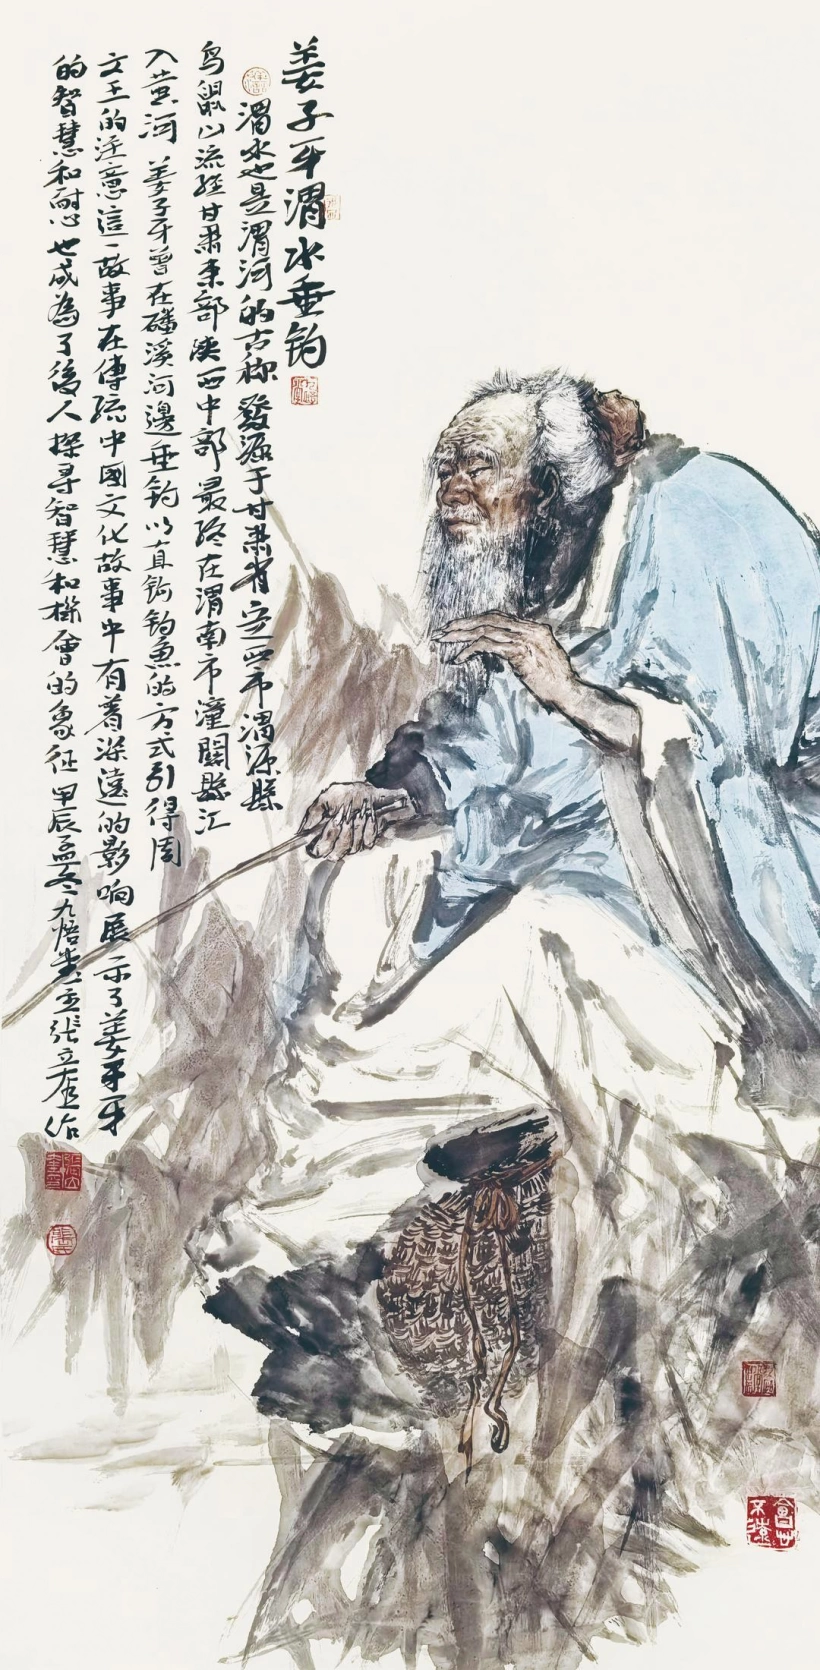 姜子牙渭水垂钓
渭水也是渭河的古称發源于甘肃省定西市渭源縣
鸟鼠山流经甘肃东部陕西中部最终在渭南市潼関縣汇
入黄河 姜子牙曾在磻溪河邊垂钓以直钩钓魚的方式引得周
文王的注意這一故事在傳统中國文化故事中有着深遠的影响展示了姜子牙
的智慧和耐心也成為了後人探寻智慧和機會的象征甲辰孟冬九悟堂主张立奎作